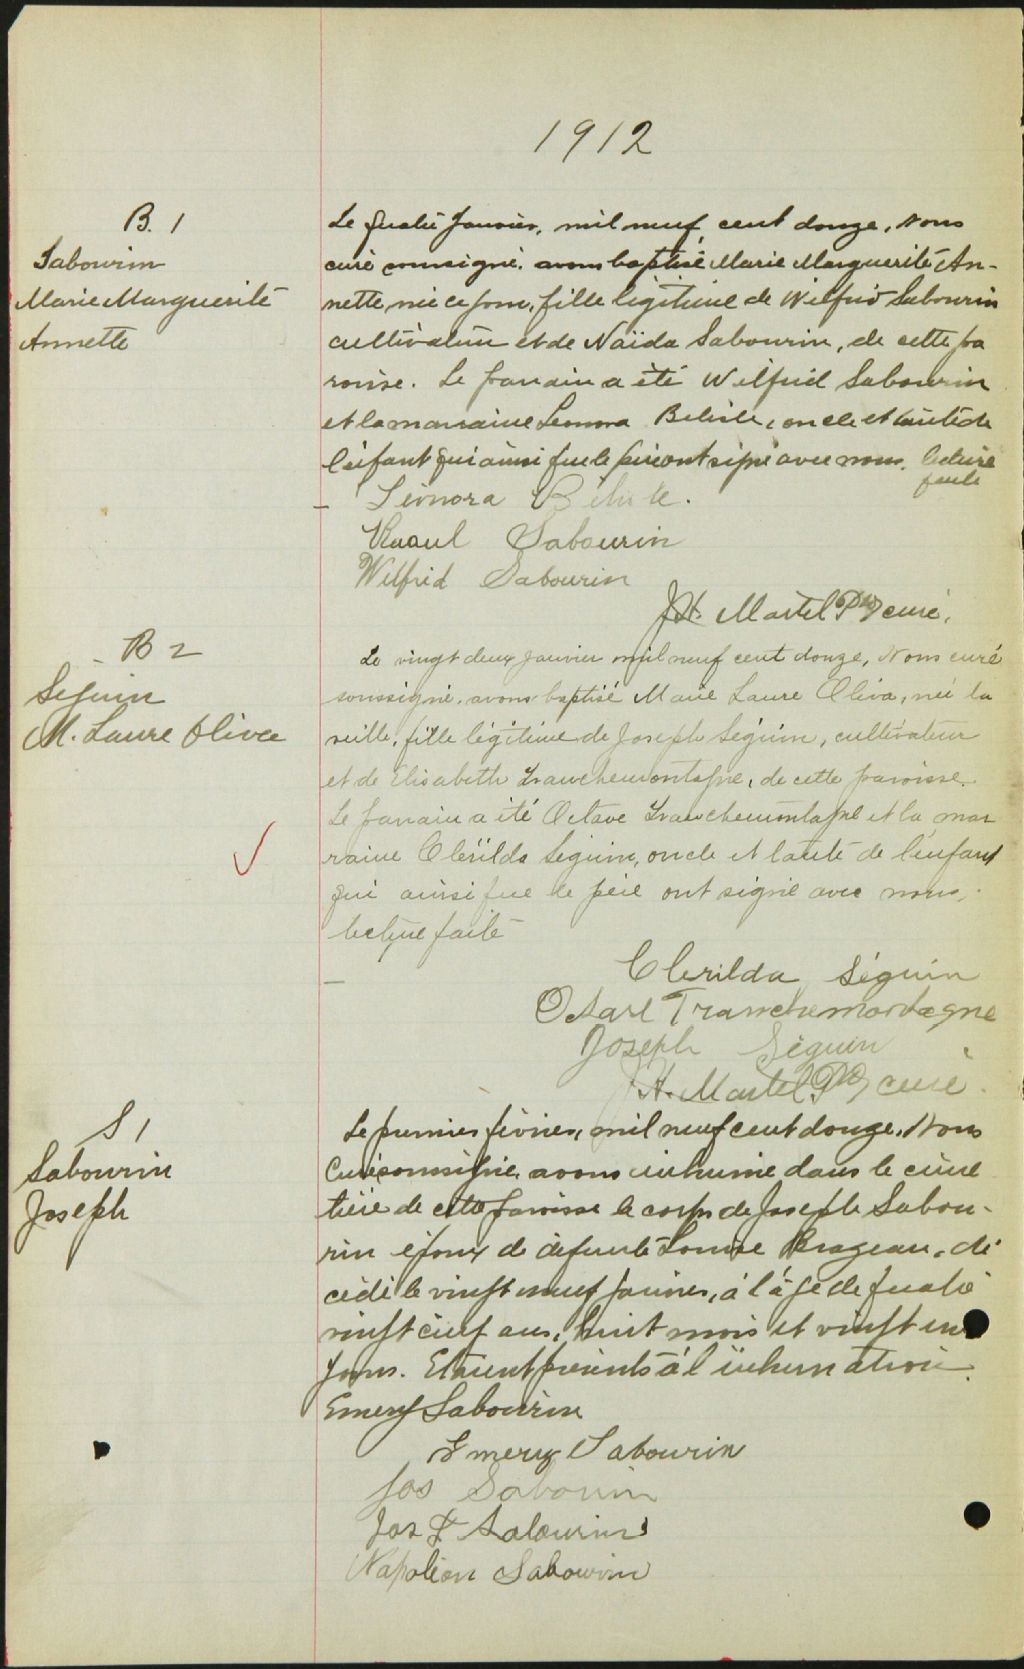 1912
B. 1
Sabourin
Marie Marguerite
Annette
Le quatre janvier, mil neuf cent douze, Nous
curé soussigné. avons baptisé Marie Marguerite An-
nette née ce jour, fille légitime de Wilfrid Sabourin
cultivateur et de Naïda Sabourin, de cette pa
roisse. Le parrain a été Wilfrid Sabourin
et la marraine Leonora Belisle, oncle et tante de
l'enfant qui ainsi que le père ont signé avec nous. lecture
faite
Léonora Belisle.
Raoul Sabourin
Wilfrid Sabourin
J.H. Martel Ptre curé.
B 2
Séguin
M. Laure Oliva
Le vingt deux janvier mil neuf cent douze, Nous curé
soussigné. avons baptisé Marie Laure Oliva, née la
veille, fille légitime de Joseph Séguin, cultivateur
et de Elisabeth Tranchemontagne, de cette paroisse.
Le parrain a été Octave Tranchemontagne et la mar
raine Clérilda Séguin, oncle et tante de l'enfant
qui ainsi que le père ont signé avec nous.
lecture faite
Clerilda Séguin
Octave Tranchemontagne
Joseph Séguin
J.H. Martel Ptre curé
S 1
Sabourin
Joseph
Le premier février, mil neuf cent douze. Nous
Curé soussigné. avons inhumé dans le cime
tière de cette paroisse le corps de Joseph Sabou-
rin époux de défunte Louise Brazeau, dé
cédé le vingt neuf janvier, à l'âge de quatre
vingt cinq ans, huit mois et vingt un
jours. Etaient présents à l'inhumation
Emery Sabourin
Emery Sabourin
Jos Sabourin
Jos F Sabourin
Napoléon Sabourin